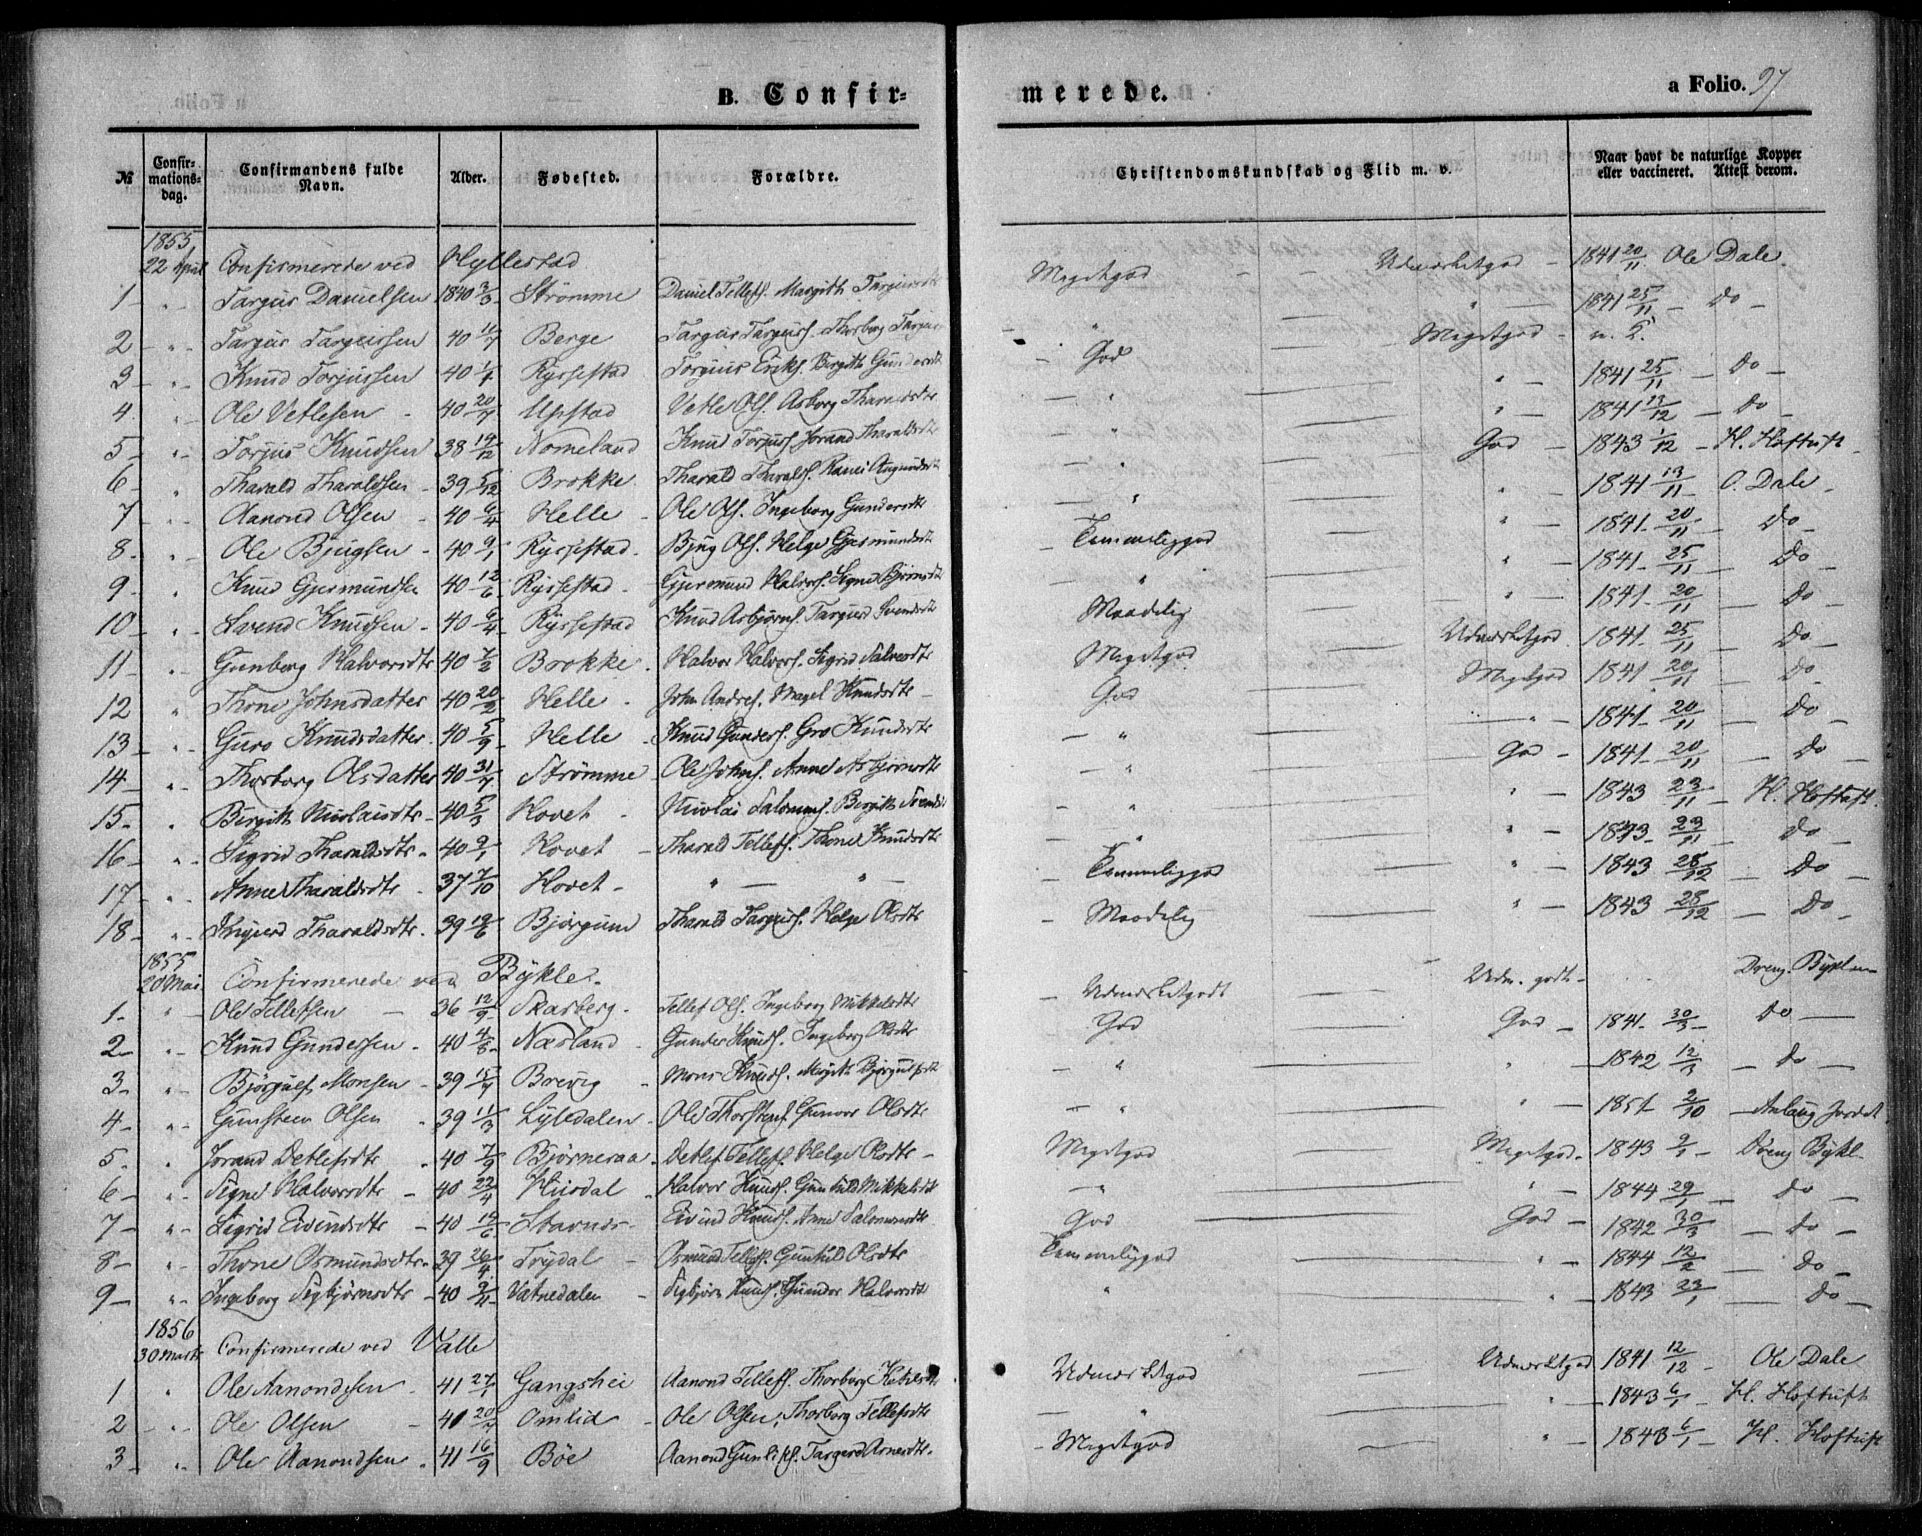 B. Confir-
merede.
a Folio. 97
№ Confir-mations-dag. Confirmandens fulde Navn. Alder. Fødested. Forældre. Christendomskundskab og Flid m. v. Naar havt de naturlige Kopper eller vaccineret. Attest derom.
1855
22 April Confirmerede ved Hyllestad
1 Targus Danielsen 1840 3/3 Strømme Daniel Tellefs. Margith Megetgod Udmærketgod 1841 20/11 Ole Dale
2 Targus 40 11/7 Berge Thorborg " " 1841 25/11 Do
3 Knud Torjussen 40 1/1 Ryssestad Torjus Eriks. Birgith Gundersdt God Megetgod n. K.
4 Ole Vetlesen 40 20/7 Upstad Vetle Ols. Asborg " " 1841 25/11 Do
5 Torjus Knudsen 38 19/12 Nomeland Knud Torjus. Jorand Tharaldsdt " " 1841 13/12 Do
6 Tharald Tharaldsen 39 5/12 Brokke Tharald Tharalds. " God 1843 1/12 H. Hoftuft
7 Aanond Olsen 40 6/4 Helle Ole Ols. Ingeborg Gundersdt " " 1841 13/11 O. Dale
8 Ole Bjugsen 40 9/1 Ryssestad Bjug Ols. Helge Gjermundsdt Temmeliggod " 1841 20/11 Do
9 Knud Gjermundsen 40 12/6 Ryssestad Gjermund Halvors. Signe Bjørnsdt " " 1841 25/11 Do
10 Svend Knudsen 40 6/4 Ryssestad Knud Asbjørns. Targjerd Svendsdt Maadelig " 1841 20/11 Do
11 Gunborg Halvorsdtr 40 7/3 Brokke Halvor Halvors. Sigrid Salvesdtr Megetgod Udmærketgod 1841 25/11 Do
12 Thone Johnsdatter 40 20/2 Helle John Andres. Knudsdtr God Megetgod 1841 20/11 Do
13 Guro Knudsdatter 40 5/9 Helle Knud Gunders. Gro Knudsdtr " " 1841 20/11 Do
14 Thorborg Olsdatter 40 31/7 Strømme Ole Johns. Anne Asbjørnsdtr " God 1841 20/11 Do
15 Birgith Nicolaisdtr 40 5/3 Hovet Nicolai Birgith " " 1843 23/11 H. Hoftuft
16 Sigrid Tharaldsdtr 40 9/1 Hovet Tharald Tellefs. Thone Knudsdtr " " 1843 23/11 Do
17 Anne Tharaldsdtr 37 7/10 Hovet " " Temmeliggod " 1843 28/12 Do
18 Tharaldsdtr 39 19/6 Bjørgum Tharald Targus. Helge Olsdtr Maadelig " 1843 28/12 Do
1855
20 Mai Confirmerede ved Bykle.
1 Ole Tellefsen 36 12/9 Skarberg Tellef Ols. Ingeborg Mikkelsdtr Udmærketgodt Udm. godt Dreng Byklum
2 Knud Gundersen 40 4/8 Næsland Gunder Knuds. Ingeborg Olsdtr God God 1841 30/3 Do
3 Bjørgulf Monsen 39 15/9 Breivig Mons Knuds. Margith Bjørgulfsdt " " 1842 12/3 Do
4 Gunsteen Olsen 39 11/3 Lyledalen Ole Thorstens. Gunvor Olsdtr " " 1851 2/10 Aslaug Jordet
5 Jorand Detlefsdtr 40 7/9 Bjørneraa Detlef Tellefs. Helge Olsdtr Megetgod Megetgod 1843 9/1 Dreng Bykl
6 Signe Halvorsdtr 40 22/4 Husdal Halvor Knuds. Gunhild Mikkelsdt " " 1844 29/1 Do
7 Sigrid Eivindsdtr 40 14/6 Stavnes Eivind Knuds. Anne Salomonsdtr God God 1842 30/3 Do
8 Thone Osmundsdtr 39 26/9 Trydal Osmund Tellefs. Gunhild Olsdtr Temmeliggod " 1844 12/2 Do
9 Ingeborg Sigbjørnsdtr 40 9/11 Vatnedalen Sigbjørn Knuds. Gundor Halvorsdt " " 1843 23/1 Do
1856
30 Marts Confirmerede ved Valle
1 Ole Aanondsen 41 27/1 Gangshei Aanond Tellefs. Thorborg Ketilsdtr Udmærketgod Udmærketgod 1841 12/12 Ole Dale
2 Ole Olsen 41 20/7 Omlid Ole Olsen, Thorborg Tellefsdtr " " 1843 6/1 H. Hoftuft
3 Ole Aanondsen 41 16/9 Bøe Aanond Gunliks. Targerd Arnesdtr. Megetgod " 1843 6/1 H. Hoftuft